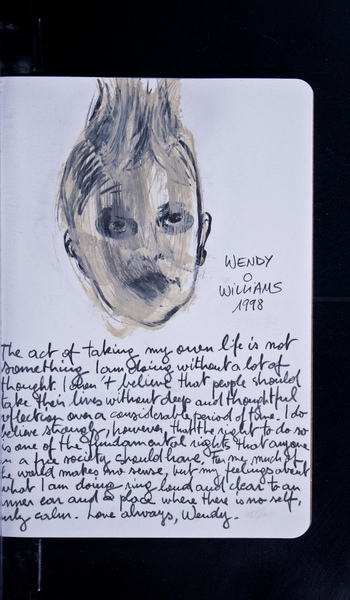 WENDY
O
WILLIAMS
1998
The act of taking my own life is not
something I am doing without a lot of
thought. I don't believe that people should
take their lives without deep and thoughtful
reflection over a considerable period of time. I do
believe strongly, however, that the right to do so
is one of the fundamental rights that anyone
in a free society should have. For me much of
the world makes no sense, but my feelings about
what I am doing ring loud and clear to an
inner ear and a place where there is no self,
only calm. Love always, Wendy.